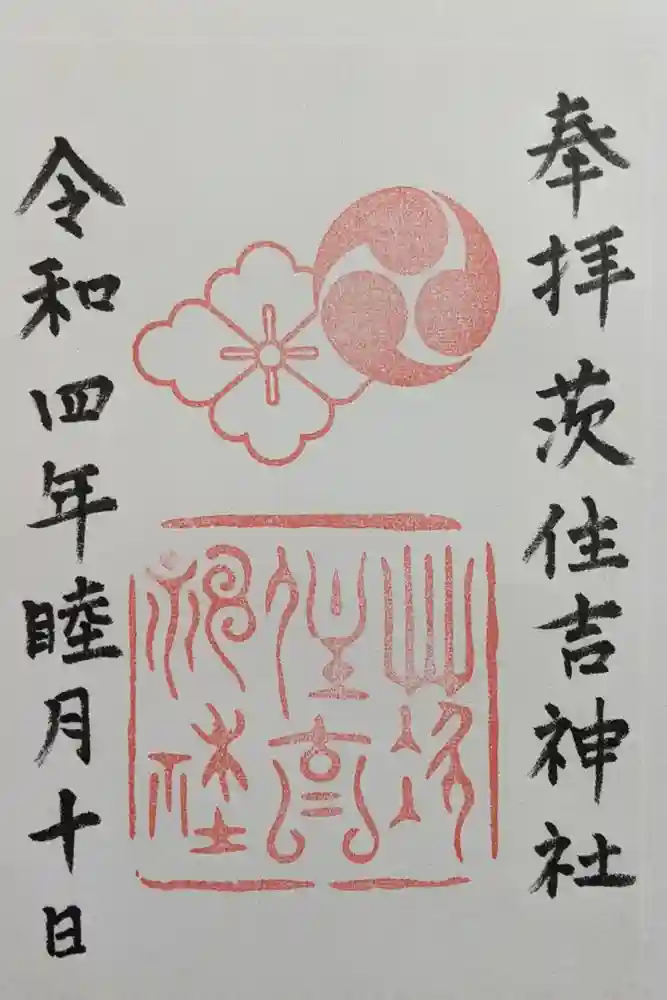 奉拝茨住吉神社
茨住吉神社
令和四年睦月十日